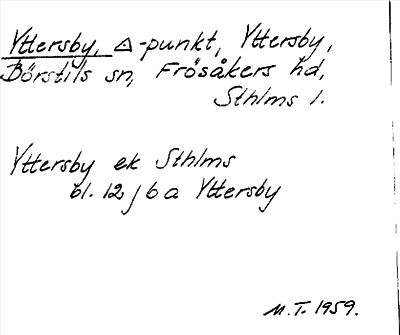 Yttersby, △-punkt, Yttersby,
Börstils sn, Frösåkers hd,
Sthlms l.
Yttersby ek Sthlms
bl. 12 j 6 a Yttersby
M.T. 1959.